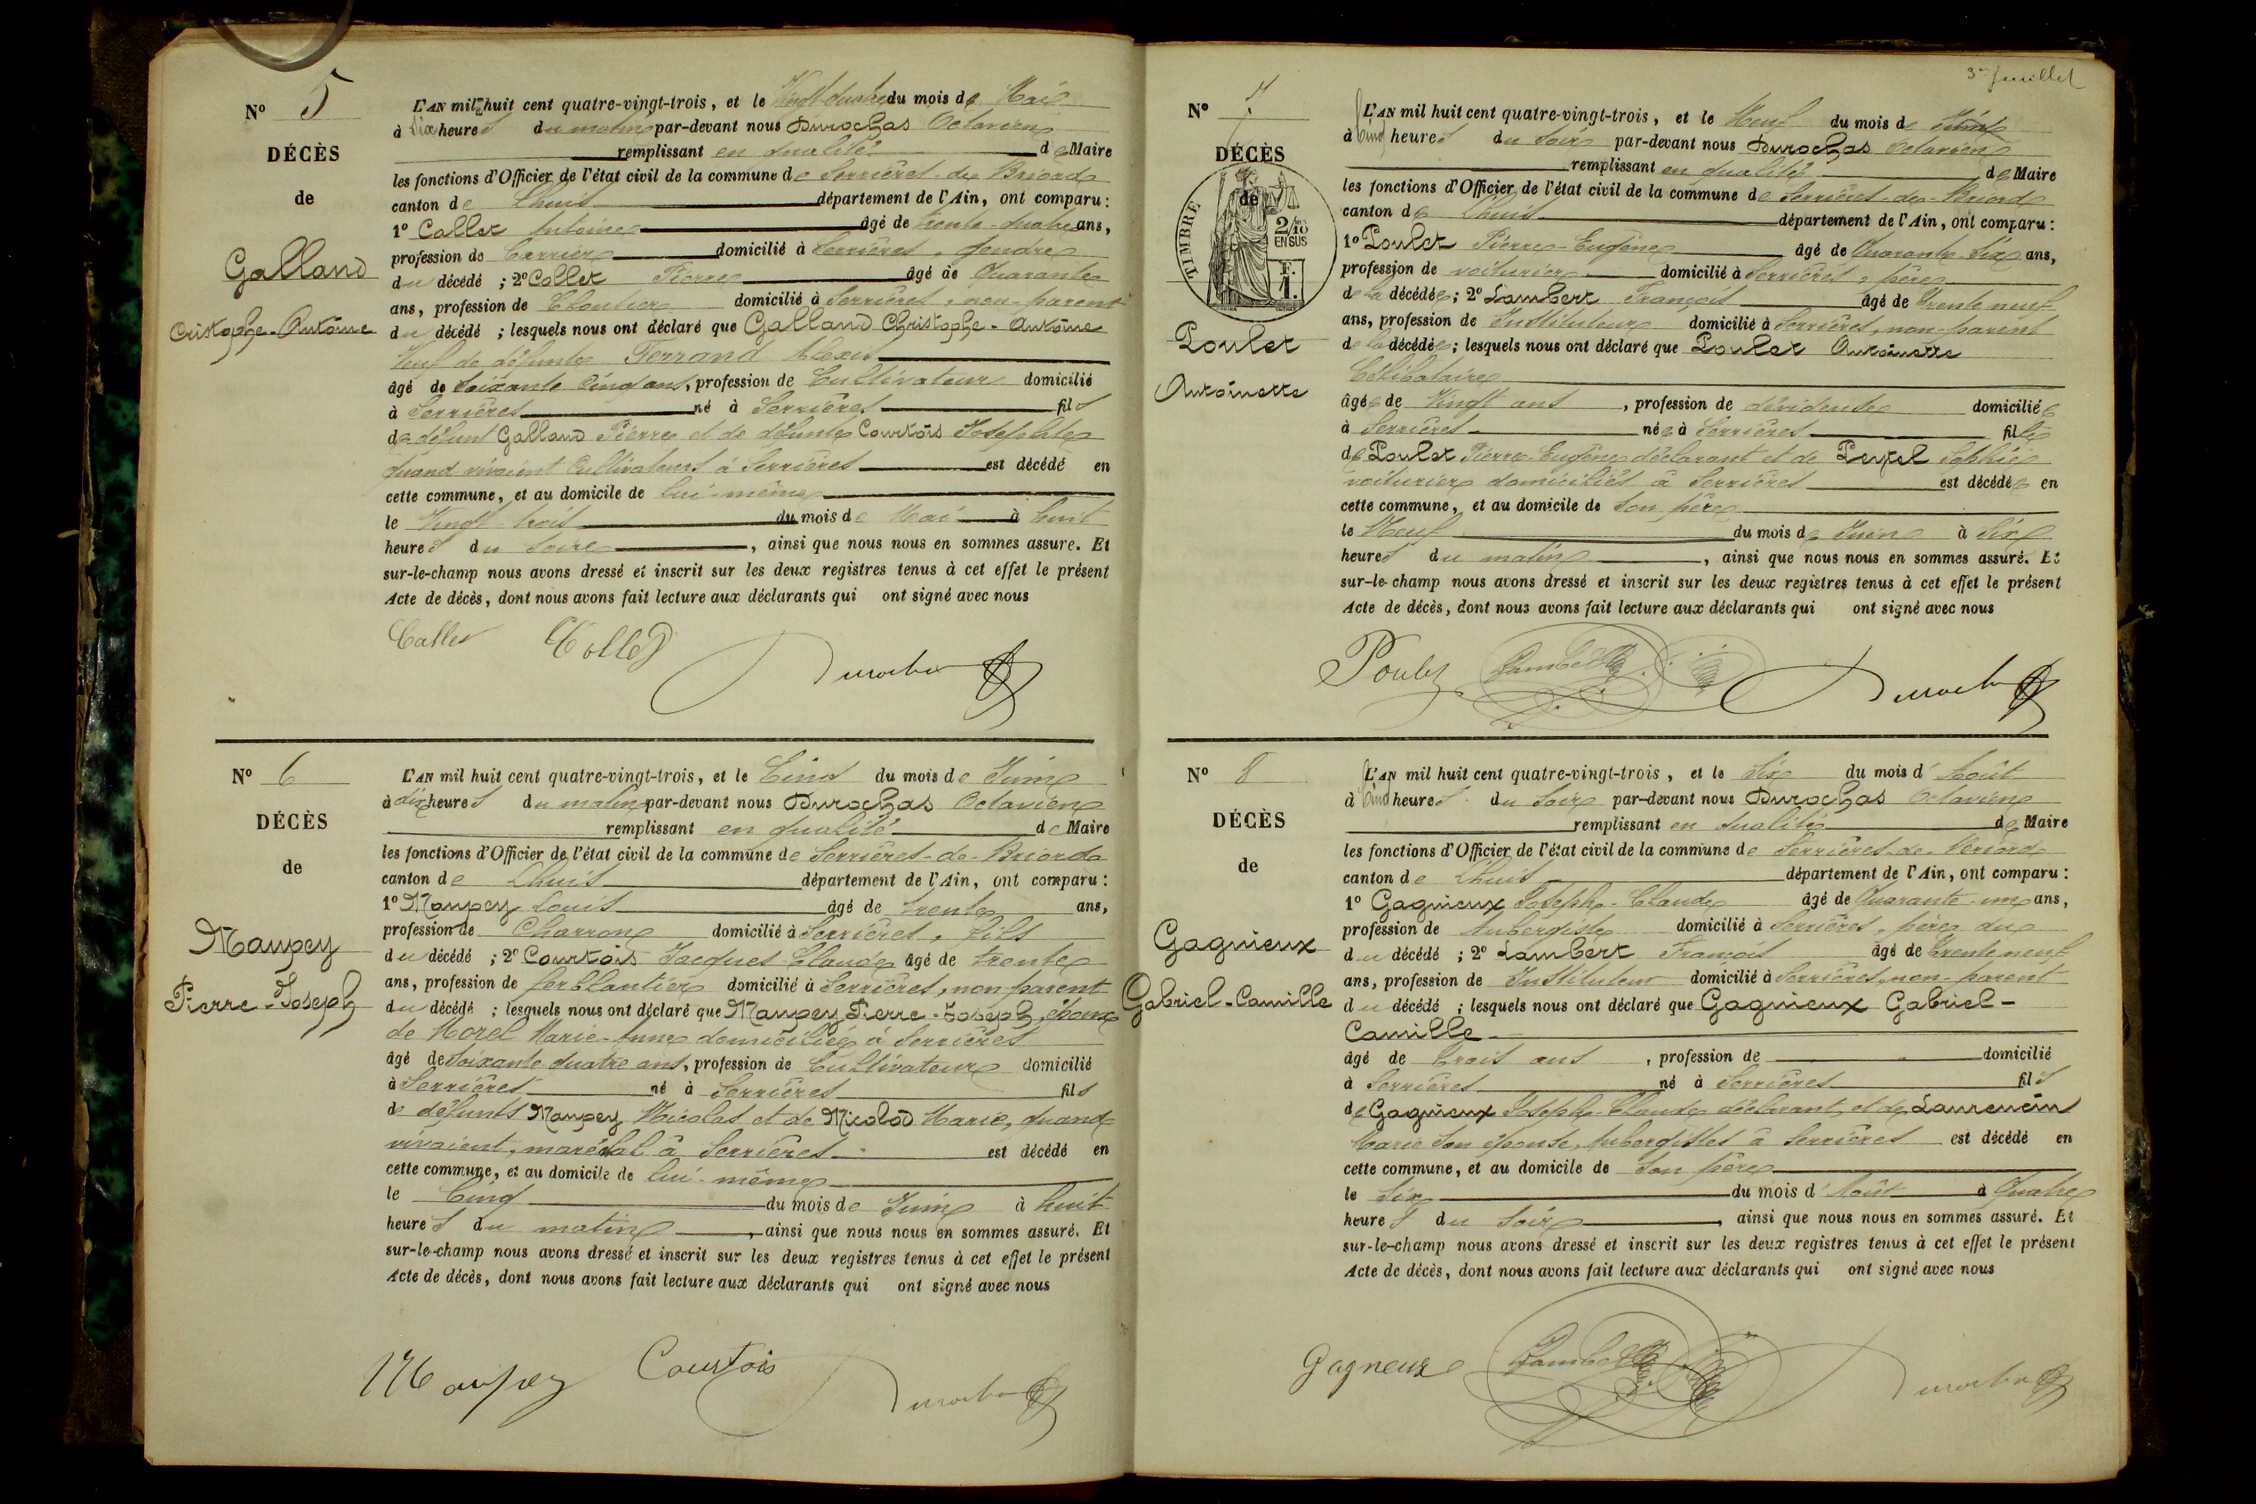 N° 5
DÉCÈS
de
Galland
Cristophe-Antoine
L'AN mil huit cent quatre-vingt-trois, et le Vingt-quatre du mois de Mai
à Six heures du matin par-devant nous Durochas Octavien
remplissant en qualité de Maire
les fonctions d'Officier de l'état civil de la commune de Serrières-de-Briord
canton de Lhuis département de l'Ain, ont comparu :
1° Collet Antoine âgé de trente-quatre ans,
profession de Carrier domicilié à Serrières, gendre
du décédé ; 2° Collet Pierre âgé de Quarante
ans, profession de Cloutier domicilié à Serrières, non-parent
du décédé ; lesquels nous ont déclaré que Galland Christophe-Antoine
Veuf de défunte Ferrand Alexis
âgé de Soixante Cinq ans, profession de Cultivateur domicilié
à Serrières né à Serrières fils
de défunt Galland Pierre et de défunte Courtois Josephte
quand vivaient Cultivateurs à Serrières est décédé en
cette commune, et au domicile de lui-même
le Vingt trois du mois de Mai à huit
heures du soire , ainsi que nous nous en sommes assuré. Et
sur-le-champ nous avons dressé et inscrit sur les deux registres tenus à cet effet le présent
Acte de décès, dont nous avons fait lecture aux déclarants qui ont signé avec nous
Collet Collet
N° 6
DÉCÈS
de
Maupey
Pierre-Joseph
L'AN mil huit cent quatre-vingt-trois, et le Cinq du mois de Juin
à dix heures du matin par-devant nous Durochas Octavien
remplissant en qualité de Maire
les fonctions d'Officier de l'état civil de la commune de Serrières-de-Briord
canton de Lhuis département de l'Ain, ont comparu :
1° Maupey Louis âgé de trente ans,
profession de Charron domicilié à Serrières, fils
du décédé ; 2° Courtois Jacques Claude âgé de trente
ans, profession de ferblantier domicilié à Serrières, non parent
du décédé ; lesquels nous ont déclaré que Maupey Pierre-Joseph, époux
de Morel Marie-Anne domiciliée à Serrières
âgé de Soixante quatre ans, profession de Cultivateur domicilié
à Serrières né à Serrières fils
de défunts Maupey Nicolas et de Nicolod Marie, quand
vivaient, maréchal à Serrières est décédé en
cette commune, et au domicile de lui-même
le Cinq du mois de Juin à huit
heures du matin , ainsi que nous nous en sommes assuré. Et
sur-le-champ nous avons dressé et inscrit sur les deux registres tenus à cet effet le présent
Acte de décès, dont nous avons fait lecture aux déclarants qui ont signé avec nous
Maupey Courtois
3e feuillet
N° 7
DÉCÈS
de
TIMBRE
2/10
EN SUS
F.
1.
Poulet
Antoinette
L'AN mil huit cent quatre-vingt-trois, et le Neuf du mois de Juin
à Cinq heures du Soir par-devant nous Durochas Octavien
remplissant en qualité de Maire
les fonctions d'Officier de l'état civil de la commune de Serrières-de-Briord
canton de Lhuis département de l'Ain, ont comparu :
1° Poulet Pierre-Eugène âgé de Quarante Six ans,
profession de voiturier domicilié à Serrières, père
de la décédée ; 2° Lambert François âgé de trente neuf
ans, profession de Instituteur domicilié à Serrières, non-parent
de la décédée ; lesquels nous ont déclaré que Poulet Antoinette
Célibataire
âgée de Vingt ans , profession de dévideuse domiciliée
à Serrières née à Serrières fille
de Poulet Pierre-Eugène déclarant et de Peyzel Sophie
voituriers domiciliés à Serrières est décédée en
cette commune, et au domicile de Son père
le Neuf du mois de Juin à Six
heures du matin , ainsi que nous nous en sommes assuré. Et
sur-le-champ nous avons dressé et inscrit sur les deux registres tenus à cet effet le présent
Acte de décès, dont nous avons fait lecture aux déclarants qui ont signé avec nous
Poulet Lambert
N° 8
DÉCÈS
de
Gagnieux
Gabriel-Camille
L'AN mil huit cent quatre-vingt-trois, et le Six du mois d' Août
à Cinq heures du Soir par-devant nous Durochas Octavien
remplissant en qualité de Maire
les fonctions d'Officier de l'état civil de la commune de Serrières-de-Briord
canton de Lhuis département de l'Ain, ont comparu :
1° Gagnieux Joseph-Claude âgé de Quarante-un ans,
profession de Aubergiste domicilié à Serrières, père du
du décédé ; 2° Lambert François âgé de trente neuf
ans, profession de Instituteur domicilié à Serrières, non-parent
du décédé ; lesquels nous ont déclaré que Gagnieux Gabriel-
Camille
âgé de trois ans , profession de domicilié
à Serrières né à Serrières fils
de Gagnieux Joseph-Claude déclarant, et de Laurencin
Marie Son épouse, Aubergistes à Serrières est décédé en
cette commune, et au domicile de Son père
le Six du mois d' Août à Quatre
heures du Soir , ainsi que nous nous en sommes assuré. Et
sur-le-champ nous avons dressé et inscrit sur les deux registres tenus à cet effet le présent
Acte de décès, dont nous avons fait lecture aux déclarants qui ont signé avec nous
Gagneux Lambert